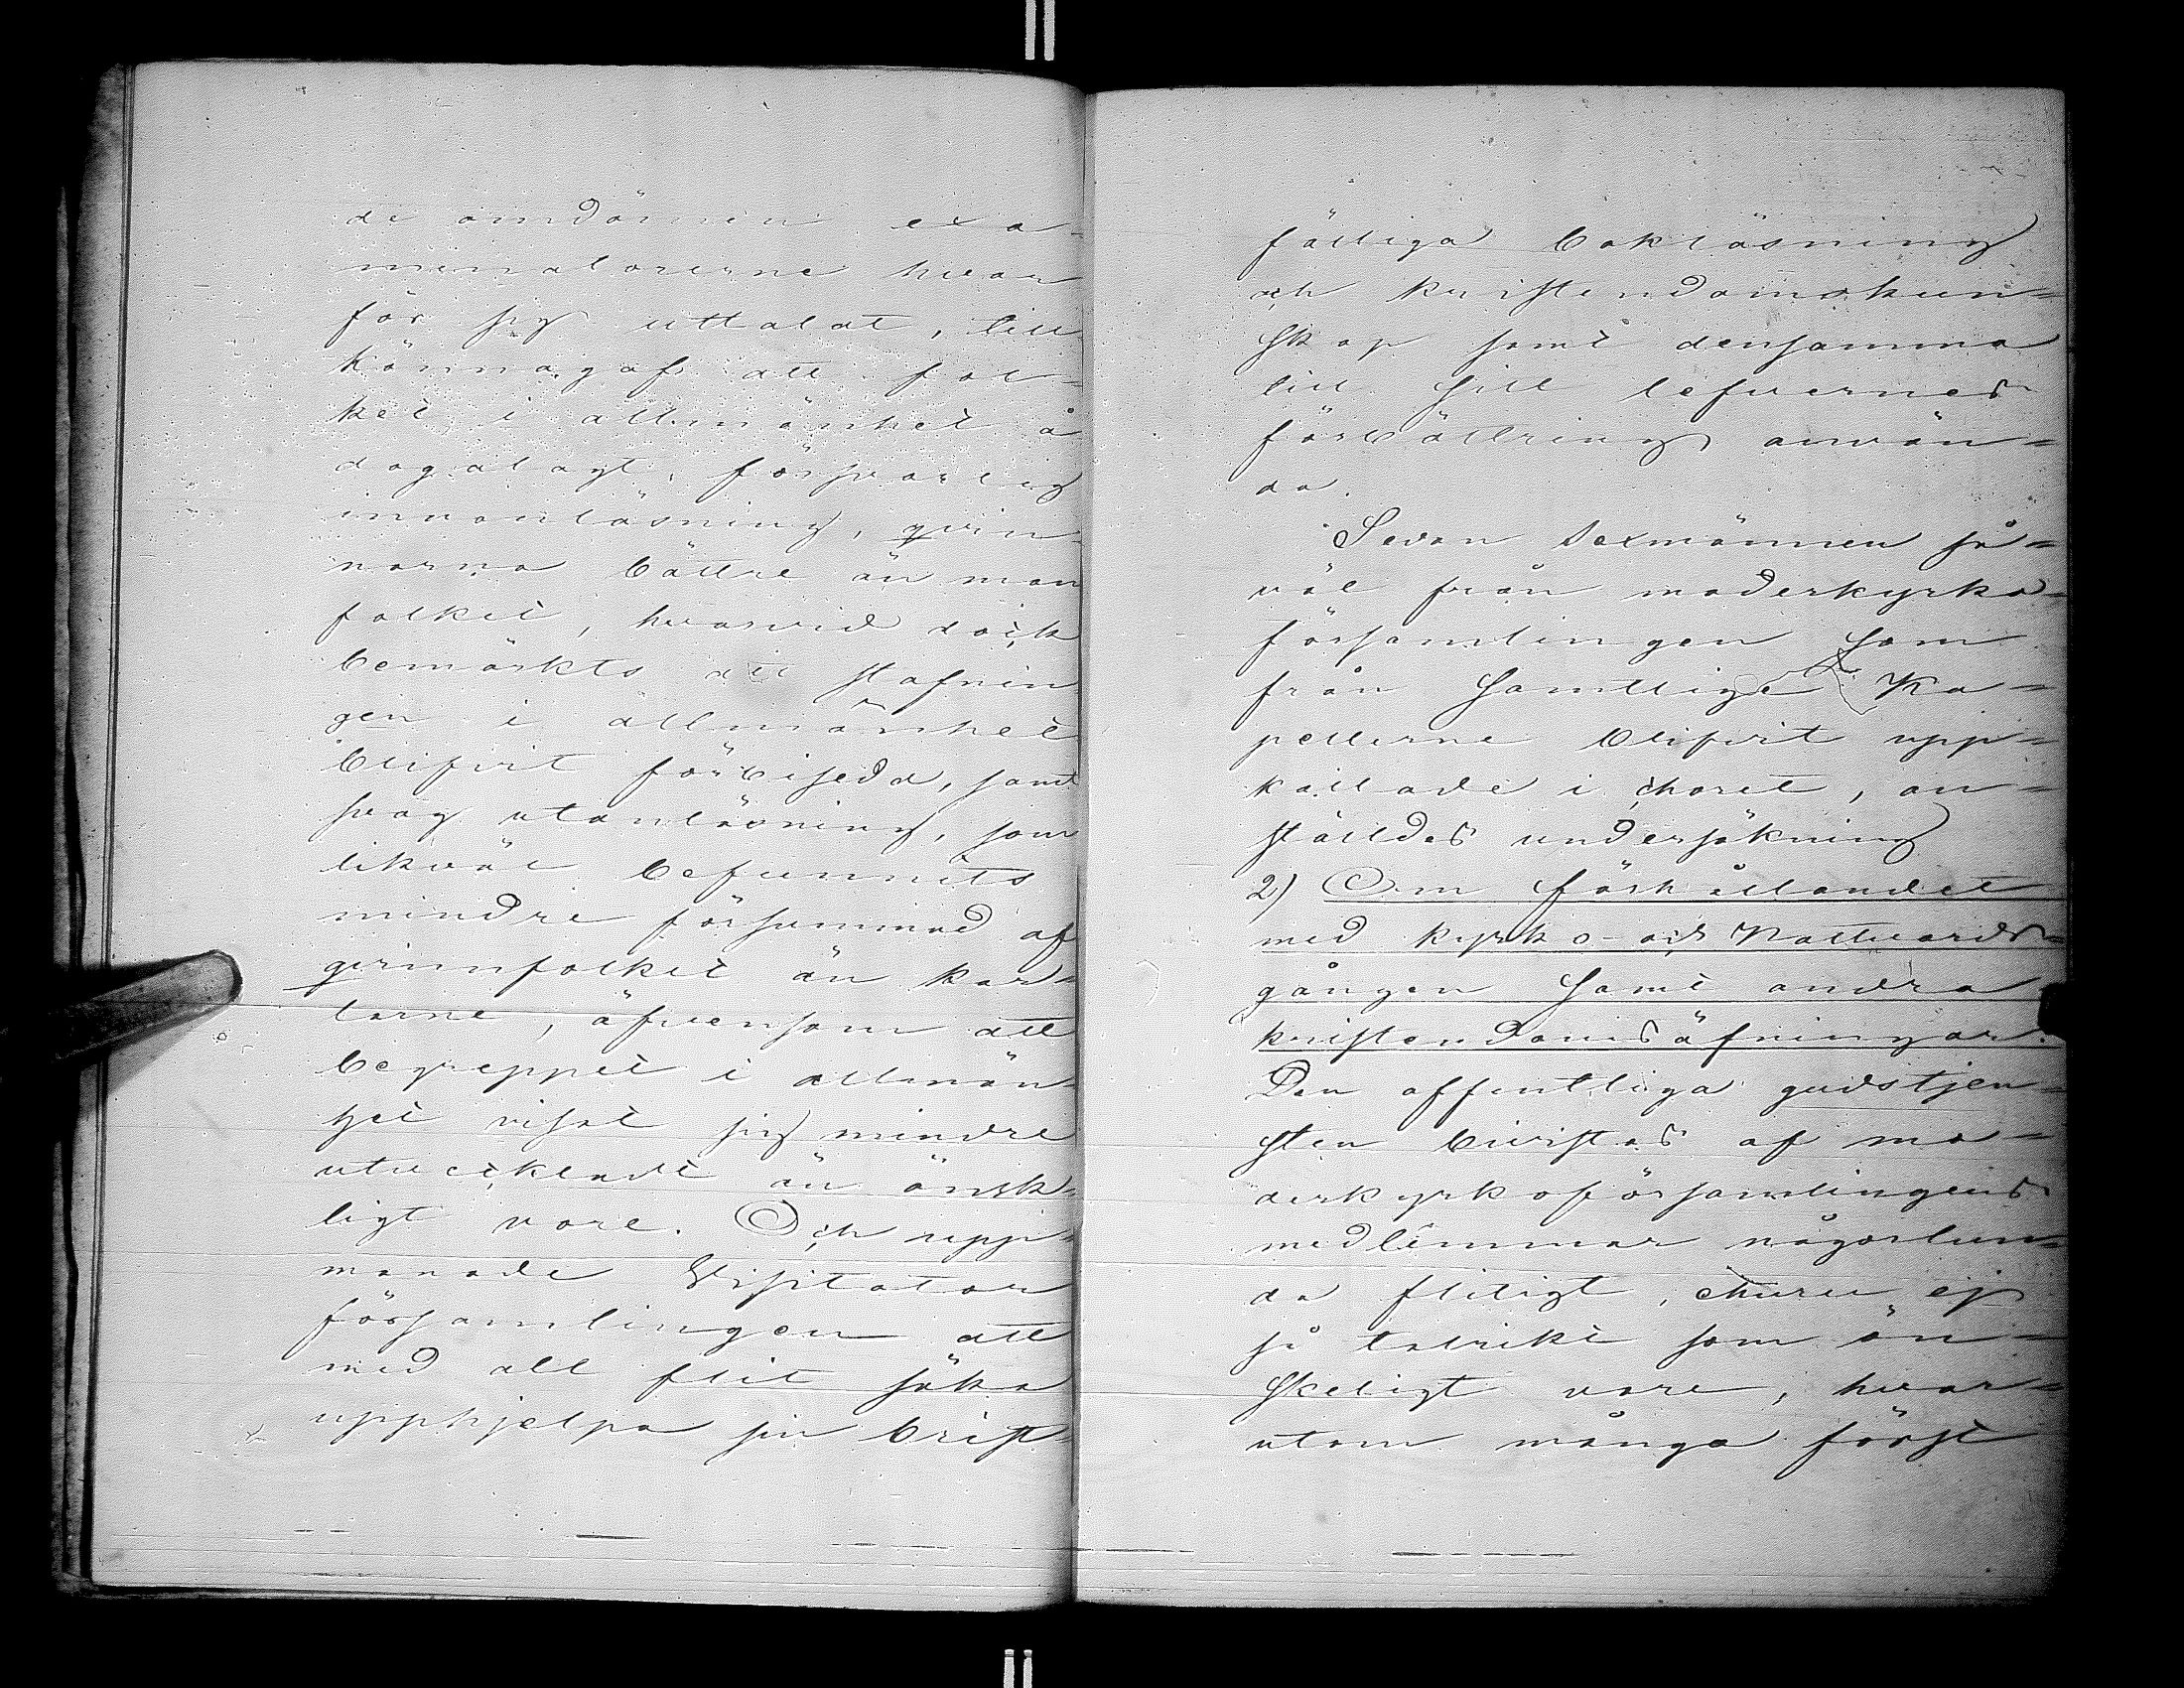 de omdömen exa-
minatorerne hvar
för sig uttalat, till
könnagaf att fol-
ket i allmänhet å
dagalagt försvarlig
innanläsning, qvin-
norna bättre än man
folket, hvarvid dock
bemärkts att stafnin
gen i allmänhet
blifvit förbisedd, samt
svag utanläsning, som
likväl befunnits
mindre försummad af
qvinnfolket än kar-
larne, äfvensom att
begreppet i allmän-
het visat sig mindre
utveckladt än önsk-
ligt vore. Och upp-
manade Visitator
församlingen att
med all flit söka
upphjelpa sin brist-
fälliga bokläsning
och kristendomskun-
skap samt densamma
till sitt lefvernes
förbättring använ-
da.
Sedan Sexmännen så-
väl från moderkyrko-
församlingen som
från samtlige Ka-
pellerne blifvit upp-
kallade i choret, an-
ställdes undersökning
2) Om förhållandet
med kyrko- och Nattvards-
gången samt andra
kristendomsöfningar.
Den offentliga gudstjen-
sten bivistas af mo-
derkyrkoförsamlingens
medlemmar någorlun-
da flitigt, churu ej
så talrikt som ön-
skeligt vore, hvar-
utom många först